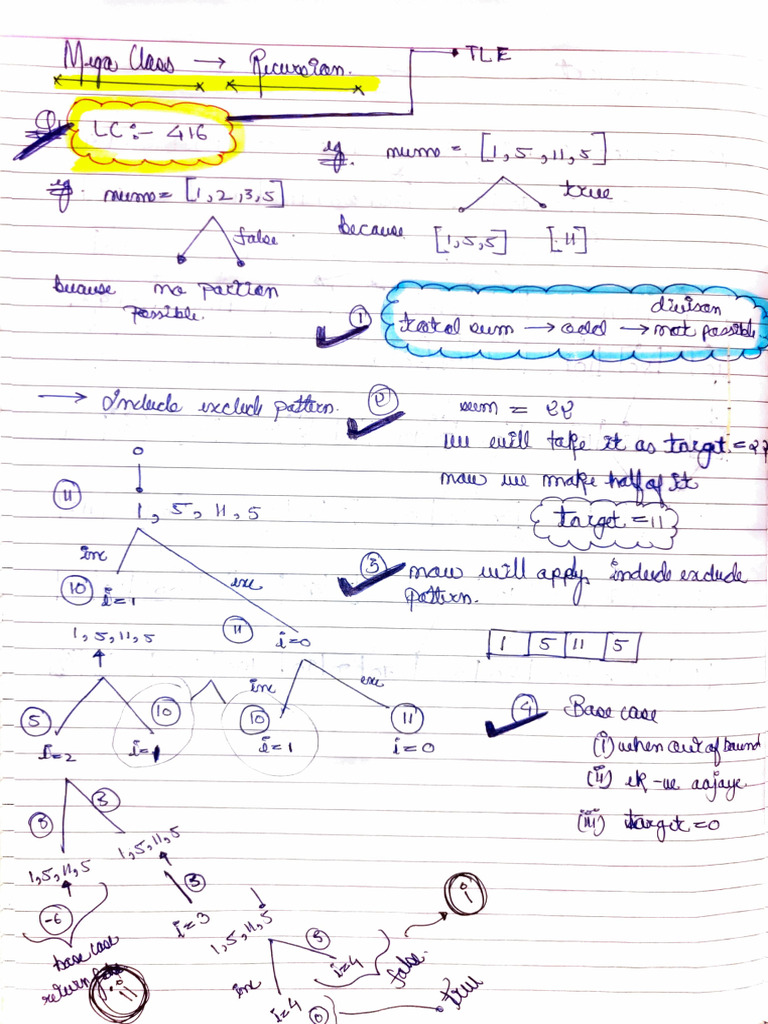 Mega Class → Recursion.
TLE
Q1 LC:- 416
eg. nums = [1, 2, 3, 5]
false
because no partion
possible.
eg. nums = [1, 5, 11, 5]
true
because [1, 5, 5] [11]
① total sum → odd → not possible
divison
→ Include exclude pattern.
② sum = 22
we will take it as target = 22
now we make half of it
target = 11
③ now will apply include exclude
pattern.
1 5 11 5
④ Base case
(i) when out of bound
(ii) ek -ve aajaye
(iii) target = 0
0
11
1, 5, 11, 5
inc
exc
10 i=1
11 i=0
1, 5, 11, 5
inc
exc
5 10 10 11
i=2 i=1 i=1 i=0
3
1, 5, 11, 5
1, 5, 11, 5
-6
base case
return false
ii
3
i=3
1, 5, 11, 5
5
inc
i=4
i=4
0
false.
i
true